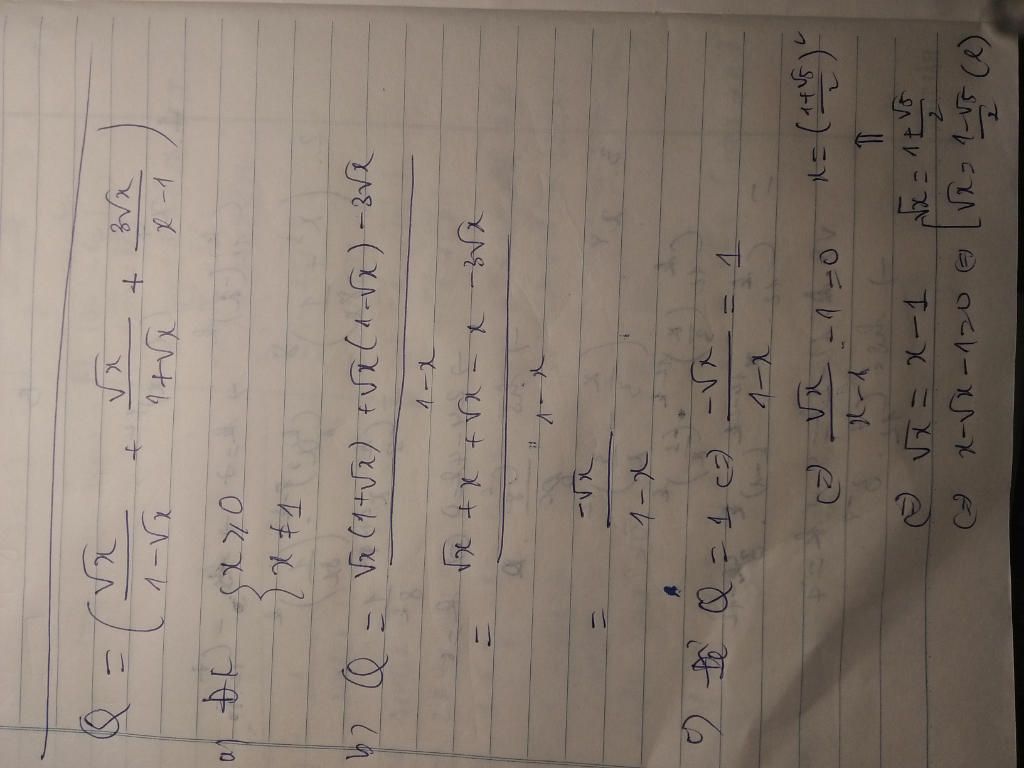 Q = ( √x / (1-√x) + √x / (1+√x) + 3√x / (x-1) )
a) ĐK { x ≥ 0
x ≠ 1
b) Q = (√x(1+√x) + √x(1-√x) - 3√x) / (1-x)
= (√x + x + √x - x - 3√x) / (1-x)
= -√x / (1-x)
c) Q = 1 ⇔ -√x / (1-x) = 1
⇔ √x / (x-1) - 1 = 0 x = ((1+√5)/2)²
⇑
⇔ √x = x - 1 √x = (1+√5)/2
⇔ x - √x - 1 = 0 ⇔ [ √x = (1-√5)/2 (l)